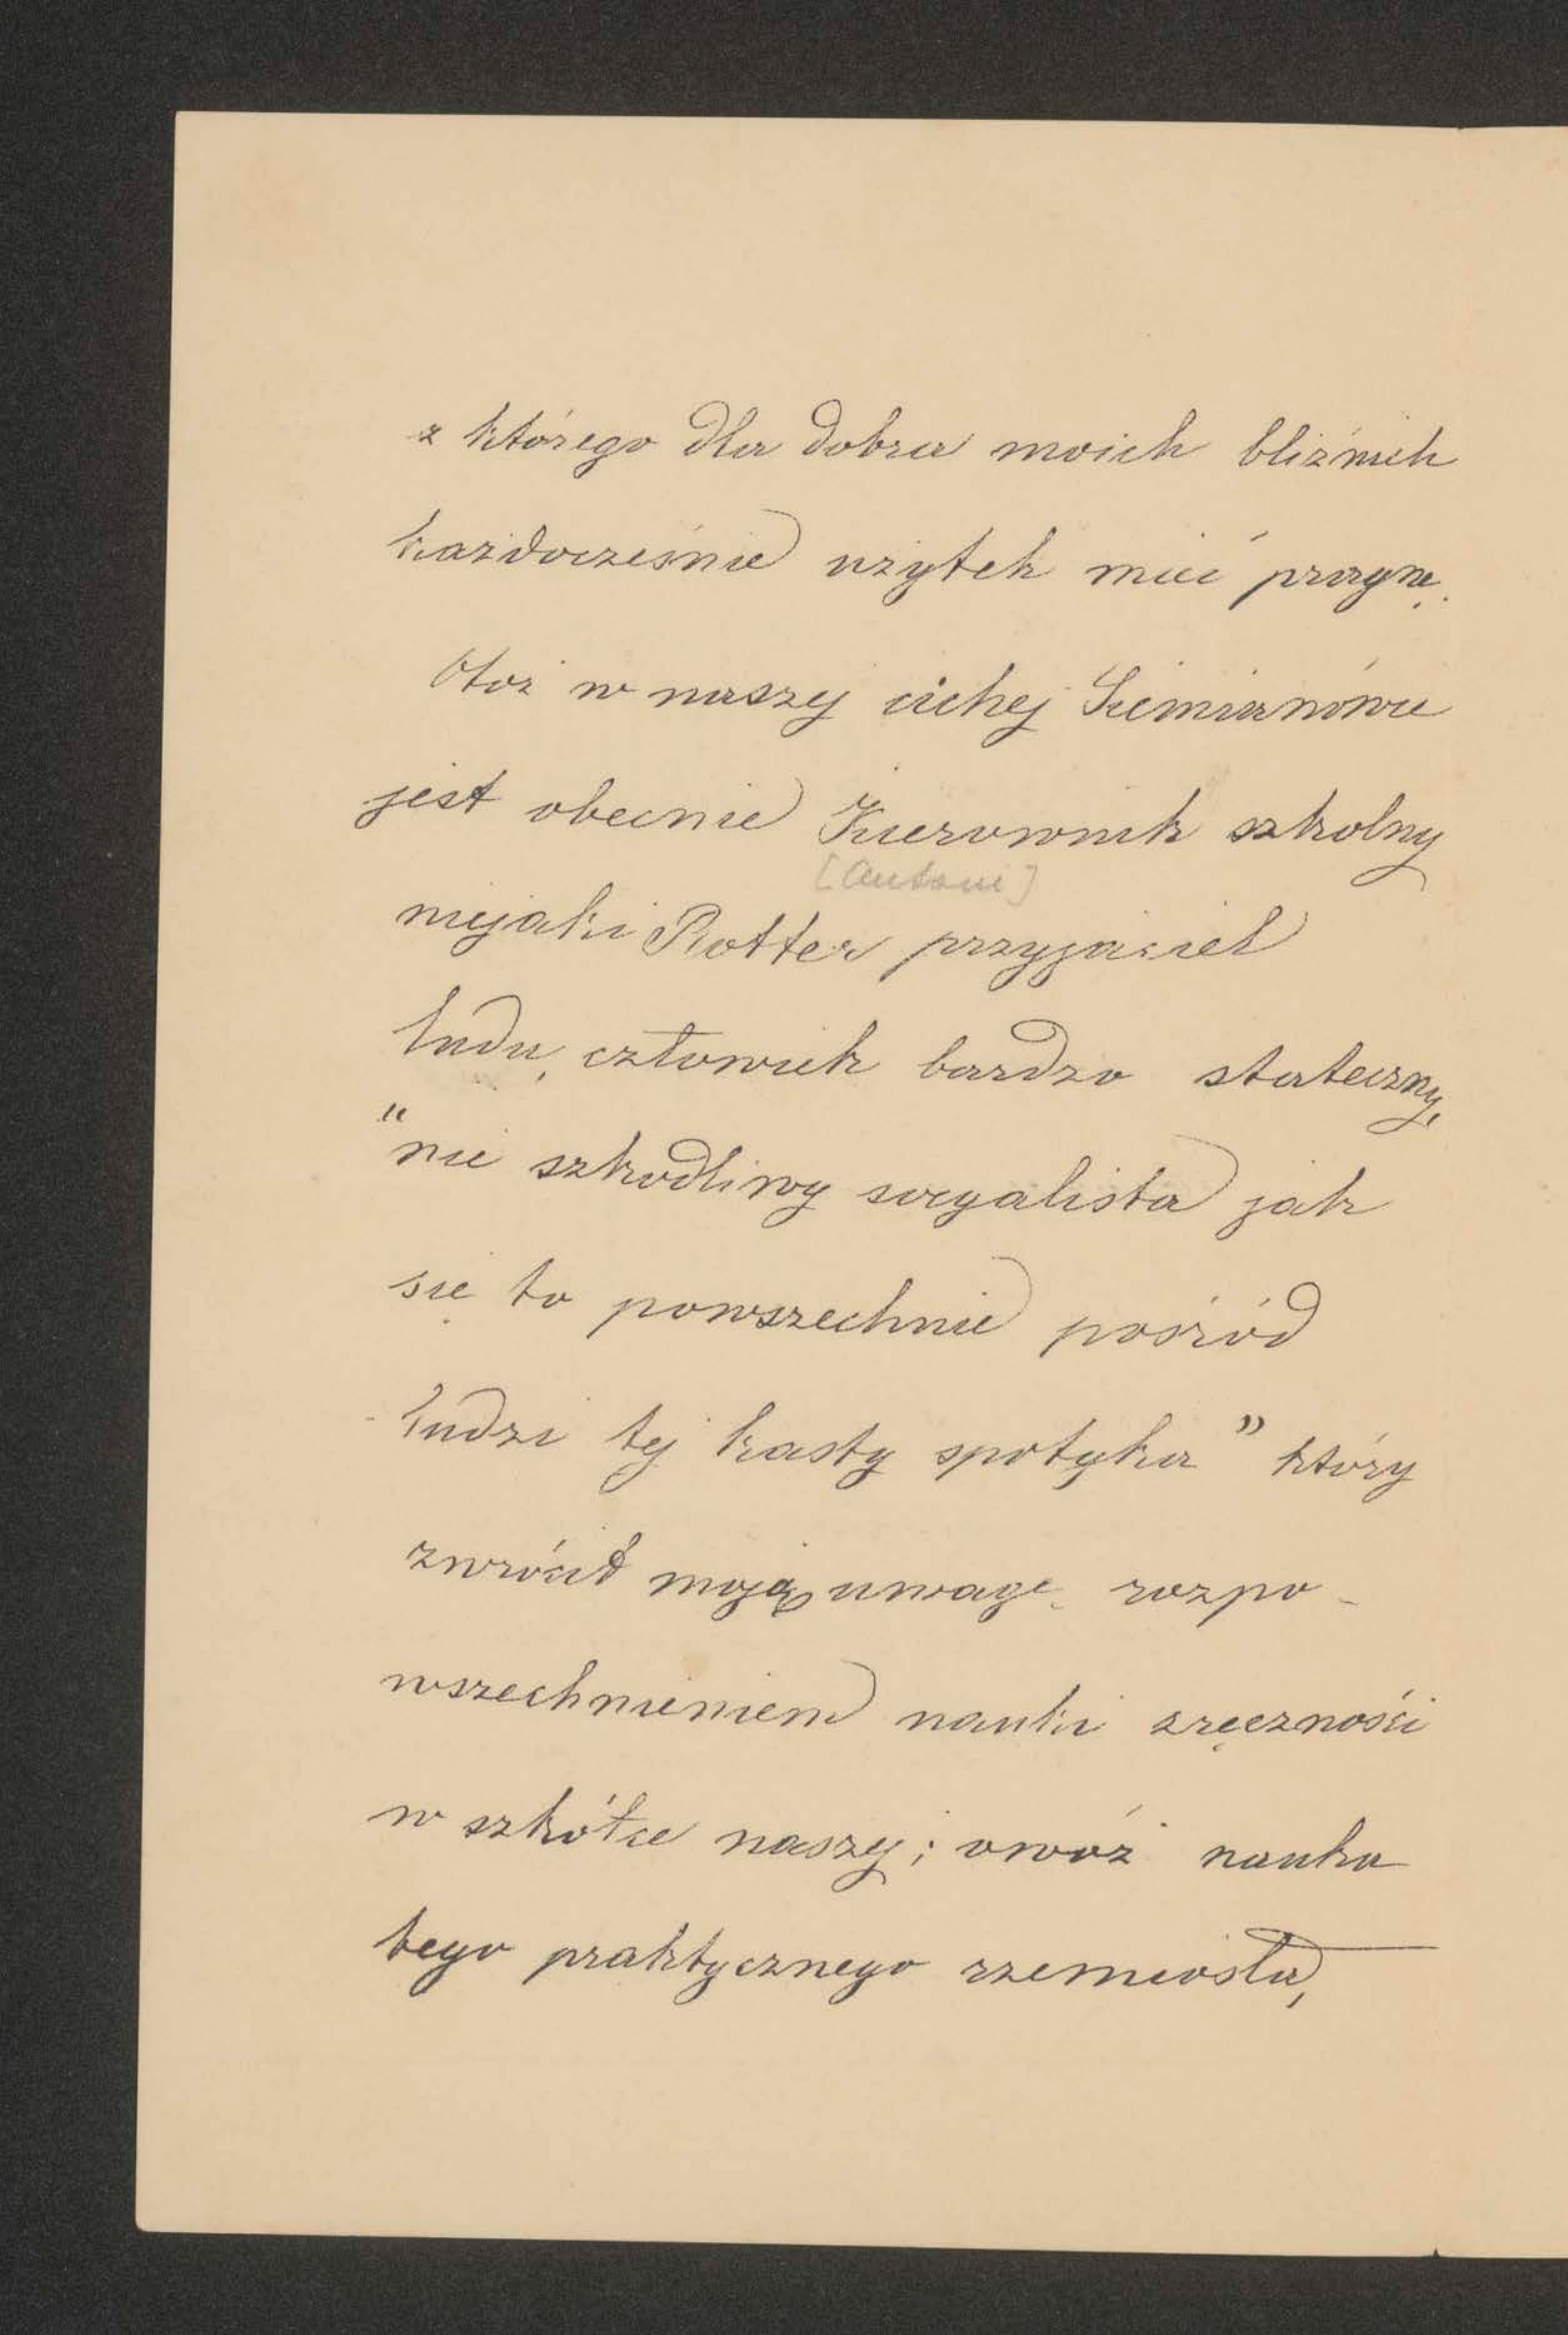 z którego dla dobra moich bliźnich
każdocześnie użytek mieć pragnę.
Otoż w naszej cichej Siemianówce
jest obecnie Kierownik szkolny
[Antoni]
niejaki Rotter przyjaciel
ludu, człowiek bardzo stateczny,
"nie szkodliwy socyalista jak
się to powszechnie pośród
ludzi tej kasty spotyka" który
zwrócił moją uwagę rozpo-
wszechnieniem nauki zręczności
w szkółce naszej; owóż nauka
tego praktycznego rzemiosła,